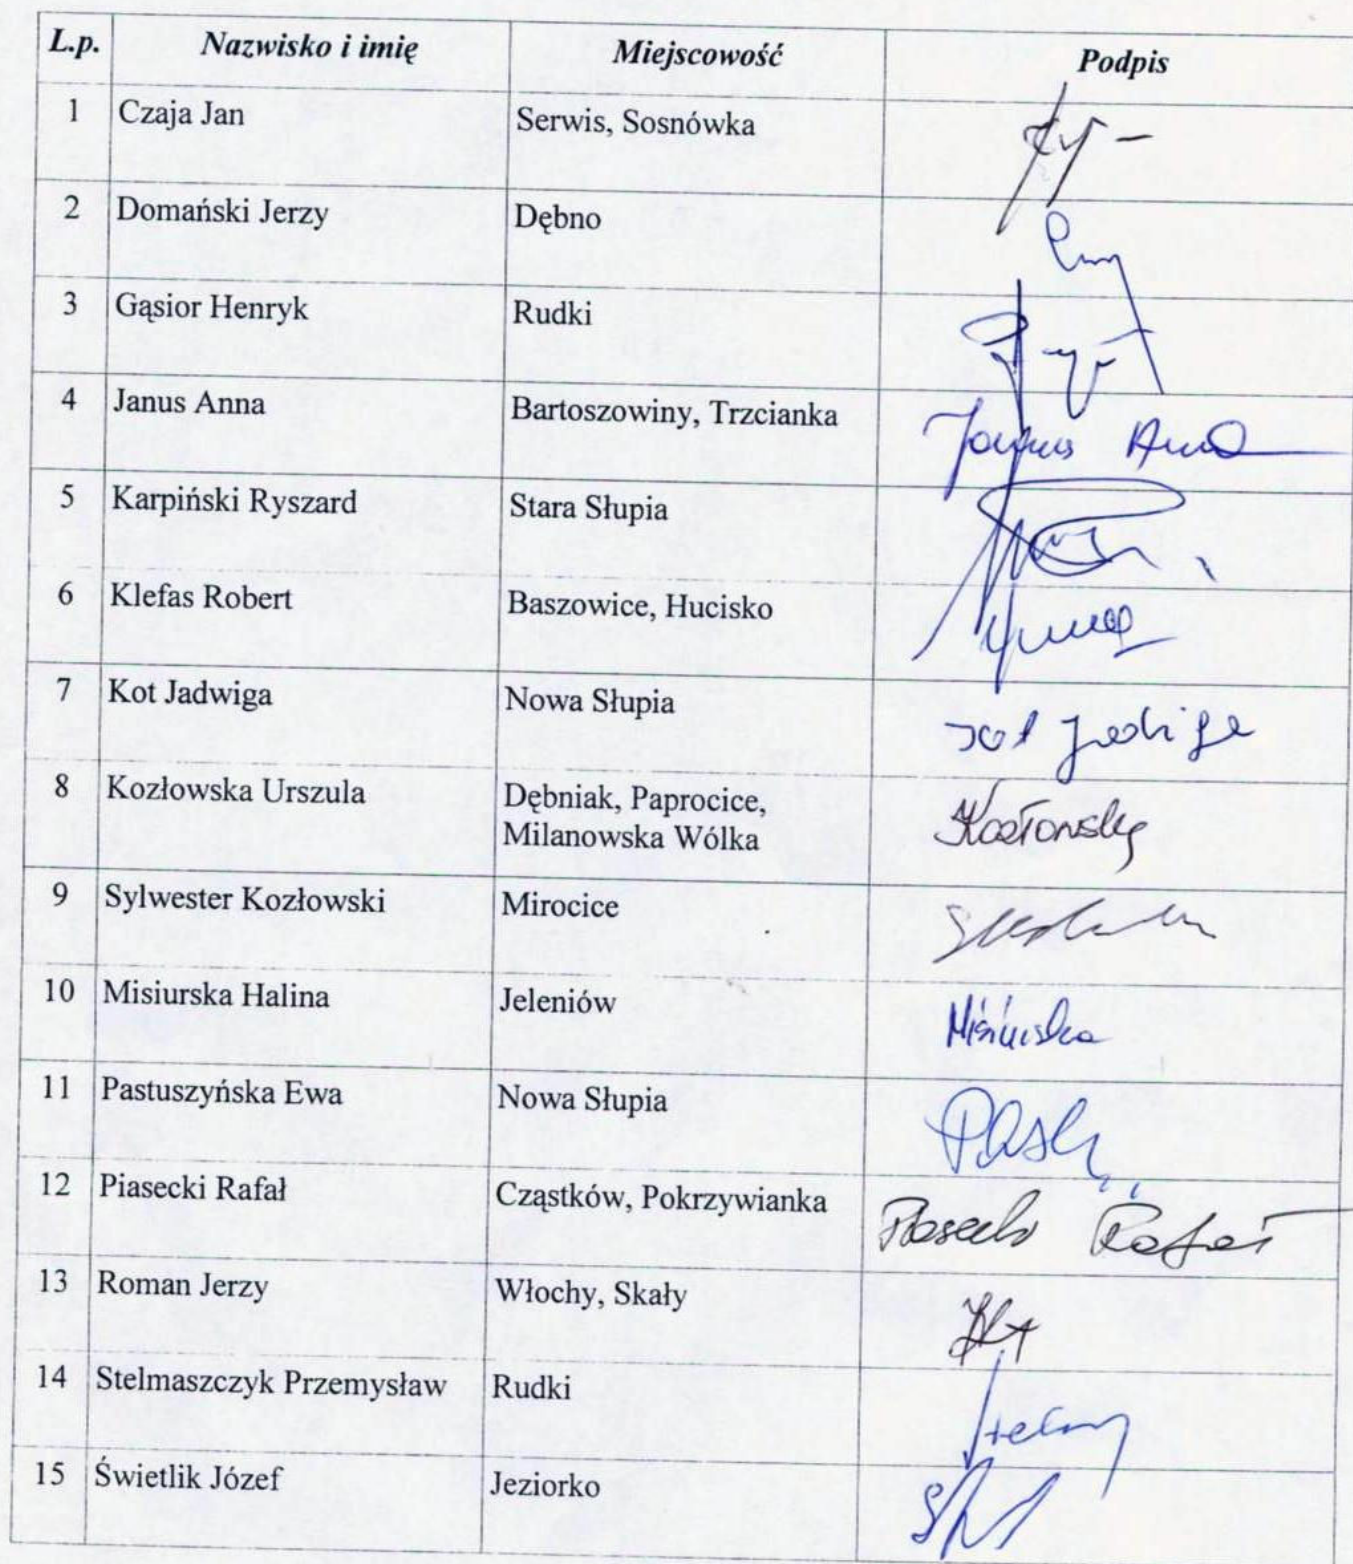 L.p. Nazwisko i imię Miejscowość Podpis
1 Czaja Jan Serwis, Sosnówka
2 Domański Jerzy Dębno
3 Gąsior Henryk Rudki
4 Janus Anna Bartoszowiny, Trzcianka Janus Anna
5 Karpiński Ryszard Stara Słupia
6 Klefas Robert Baszowice, Hucisko
7 Kot Jadwiga Nowa Słupia Kot Jadwiga
8 Kozłowska Urszula Dębniak, Paprocice,
Milanowska Wólka Kozłowska
9 Sylwester Kozłowski Mirocice
10 Misiurska Halina Jeleniów Misiurska
11 Pastuszyńska Ewa Nowa Słupia
12 Piasecki Rafał Cząstków, Pokrzywianka Piasecki Rafał
13 Roman Jerzy Włochy, Skały
14 Stelmaszczyk Przemysław Rudki
15 Świetlik Józef Jeziorko